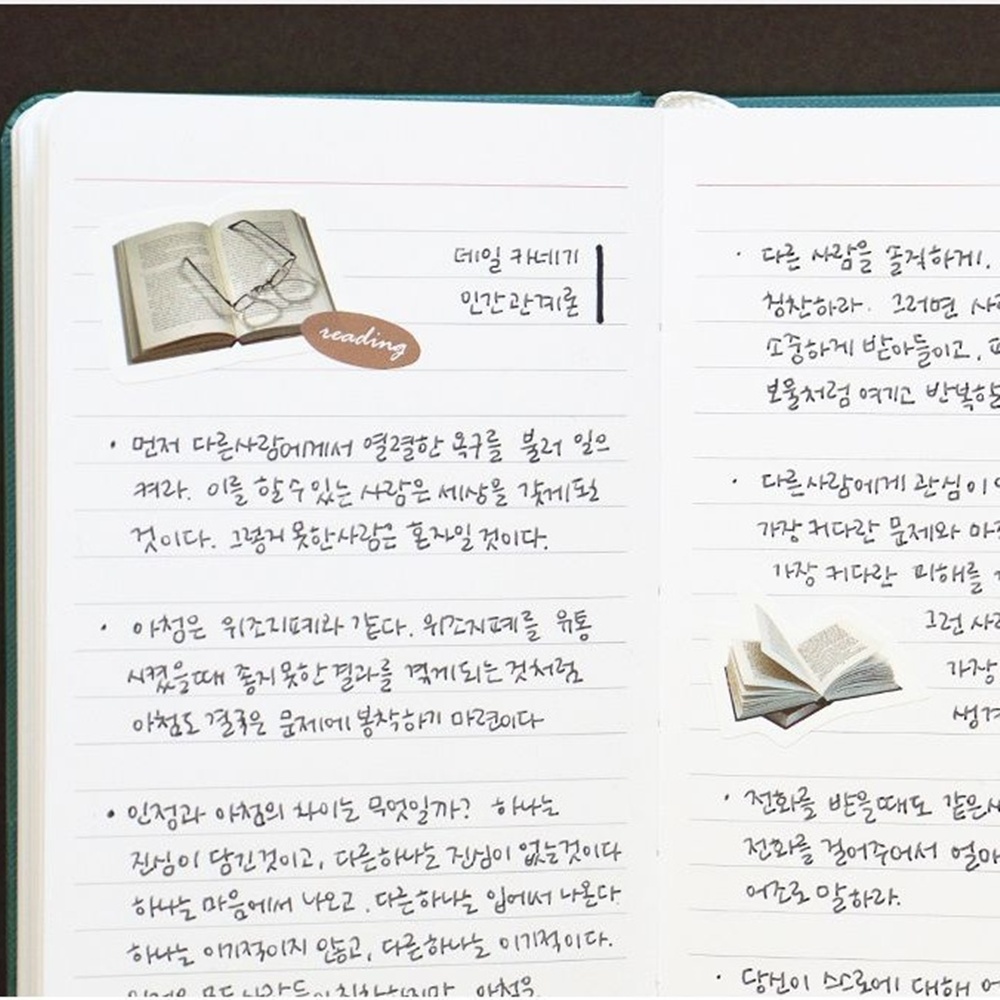 데일 카네기
인간관계론
reading
· 먼저 다른사람에게서 열렬한 욕구를 불러 일으
켜라. 이를 할수있는 사람은 세상을 갖게될
것이다. 그렇지 못한사람은 혼자일 것이다.
· 아첨은 위조지폐와 같다. 위조지폐를 유통
시켰을때 좋지못한 결과를 겪게되는 것처럼
아첨도 결국은 문제에 봉착하기 마련이다
· 인정과 아첨의 차이는 무엇일까? 하나는
진심이 담긴것이고, 다른하나는 진심이 없는것이다
하나는 마음에서 나오고, 다른하나는 입에서 나온다.
하나는 이기적이지 않고, 다른하나는 이기적이다.
아첨은
· 다른 사람을 솔직하게.
칭찬하라. 그러면
소중하게 받아들이고,
보물처럼 여기고 반복
· 다른사람에게 관심이
가장 커다란 문제와
가장 커다란 피해를
그런
가장
· 전화를 받을때도 같은
전화를 걸어주어서
어조로 말하라.
· 당신이 스스로에 대해